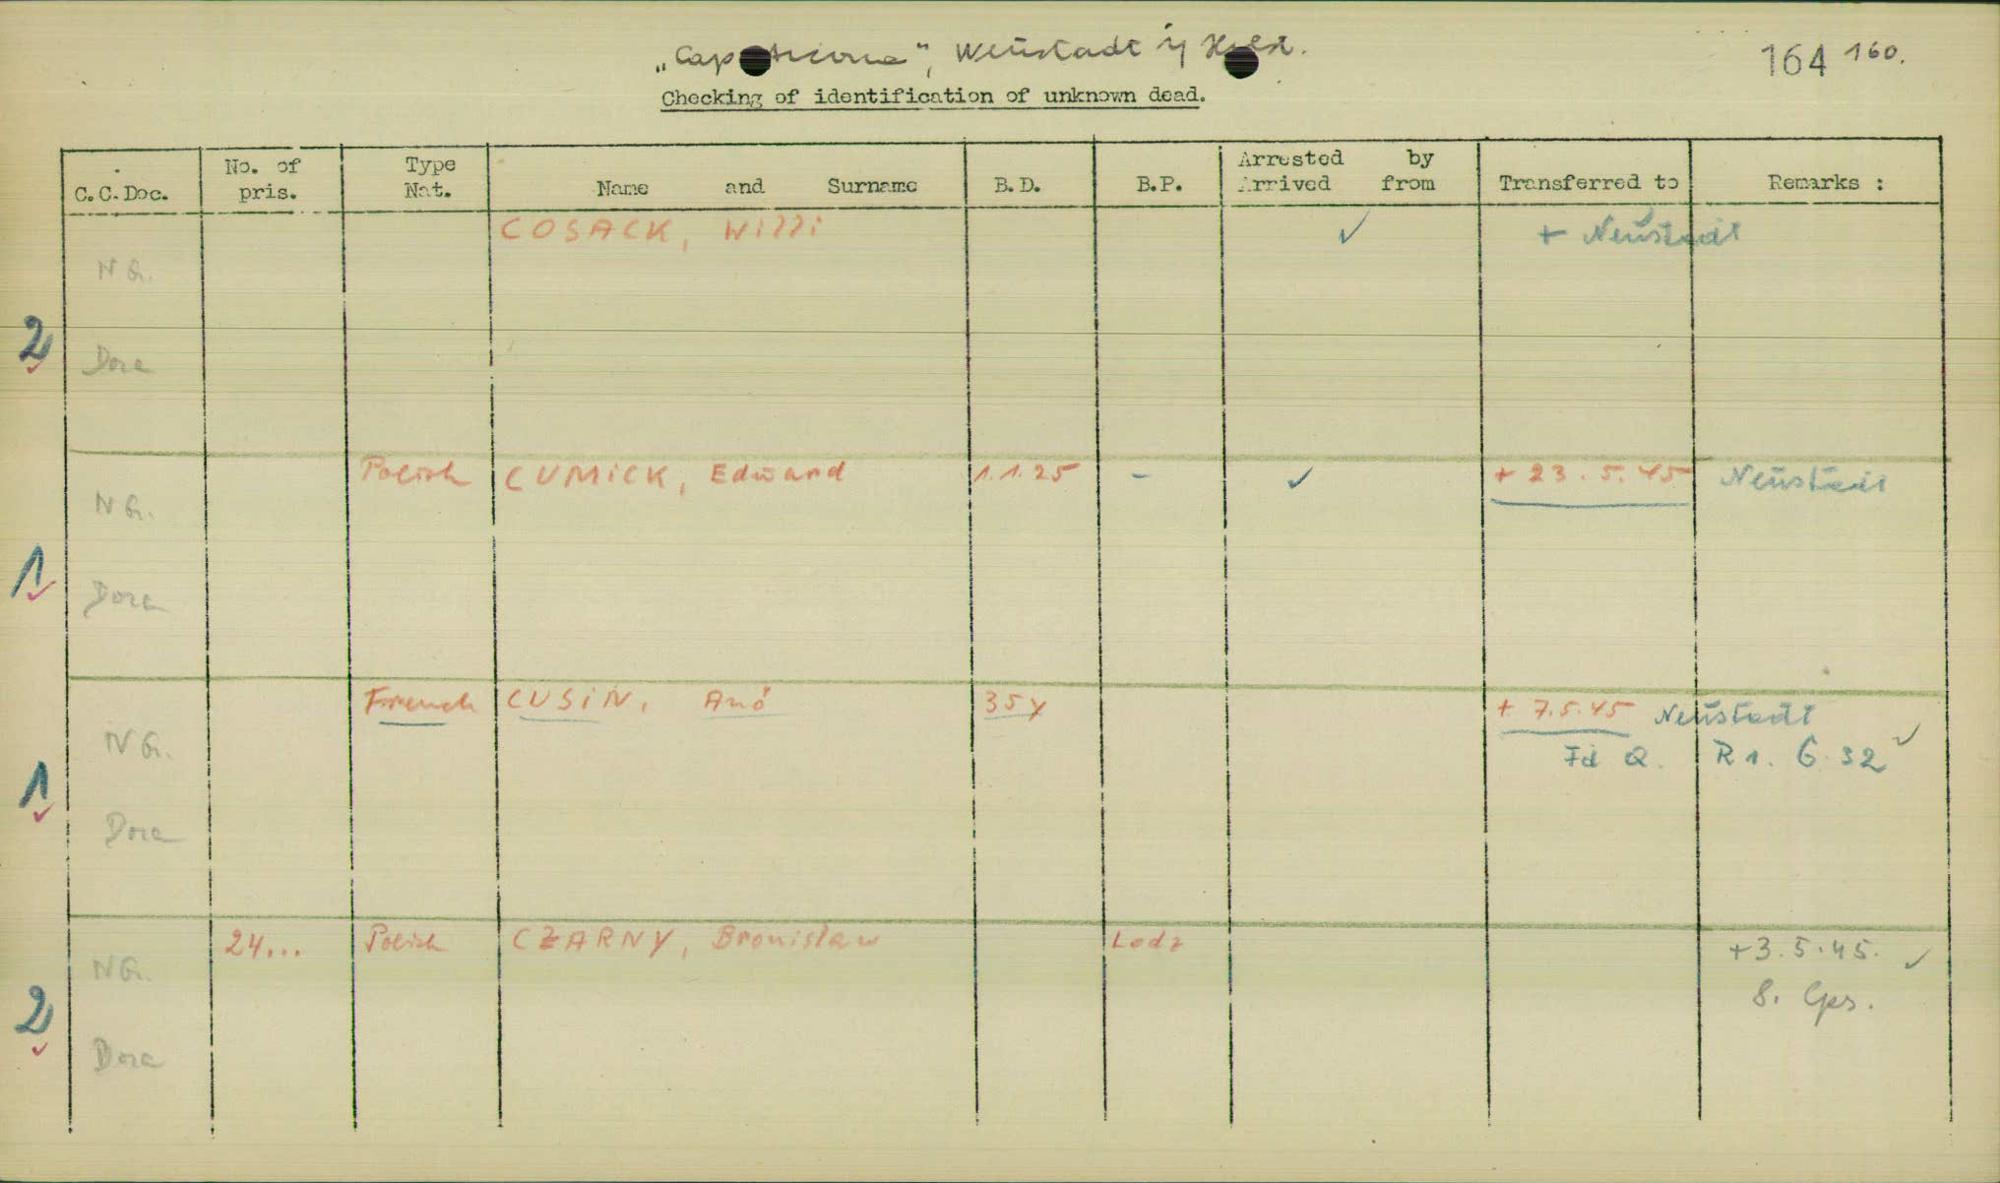 „Cap Arcona“, Neustadt i/ Holst.
164 160.
Checking of identification of unknown dead.
C.C.Doc. No. of pris. Type Nat. Name and Surname B.D. B.P. Arrested by Arrived from Transferred to Remarks :
COSACK, Willi ✓ + Neustadt
NG.
2 ✓
Dora
Polish CUMiCK, Edward 1.1.25 - ✓ + 23.5.45 Neustadt
NG.
1 ✓
Dora
French CUSiN, 35 y + 7.5.45 Neustadt
Fd Q. R 1. G 32 ✓
NG.
1 ✓
Dora
24... Polish CZARNY, Bronislaw Lodz +3.5.45. ✓
NG.
2 ✓
Dora